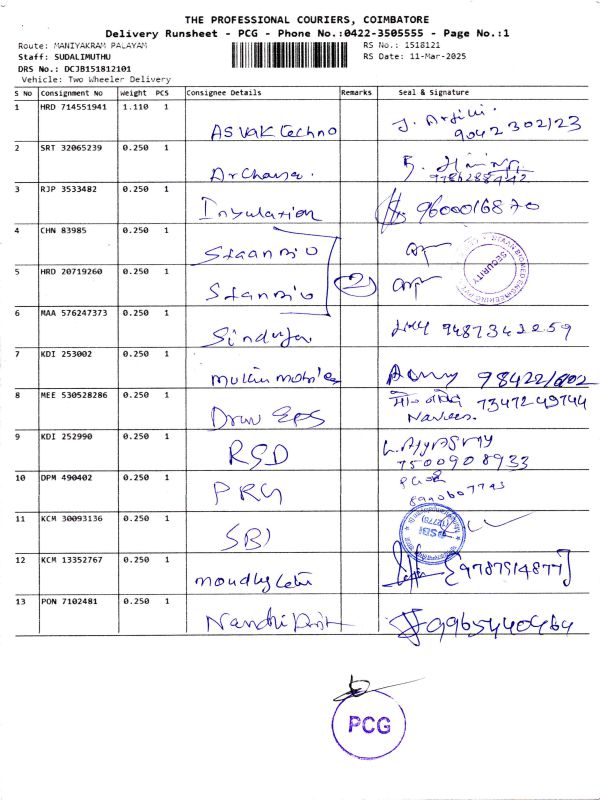 THE PROFESSIONAL COURIERS, COIMBATORE
Delivery Runsheet - PCG - Phone No.:0422-3505555 - Page No.:1
Route: MANIYAKRAM PALAYAM RS No.: 1518121
Staff: SUDALIMUTHU RS Date: 11-Mar-2025
DRS No.: DCJB151812101
Vehicle: Two Wheeler Delivery
S No Consignment No Weight PCS Consignee Details Remarks Seal & Signature
1 HRD 714551941 1.110 1
Asvak Techno
9042302123
2 SRT 32065239 0.250 1
Archana.
3 RJP 3533482 0.250 1
Insulation 9600016870
4 CHN 83985 0.250 1
Staan Bio
5 HRD 20719260 0.250 1
Stan Bio 2
SECURITY
6 MAA 576247373 0.250 1
Sinduja 9487342259
7 KDI 253002 0.250 1
98422
8 MEE 530528286 0.250 1
7347249744
Naveen.
9 KDI 252990 0.250 1
RSD
7500908933
10 DPM 490402 0.250 1
PRG
11 KCM 30093136 0.250 1
SBI
SBI
12 KCM 13352767 0.250 1
[9787914877]
13 PON 7102481 0.250 1
9965440464
PCG